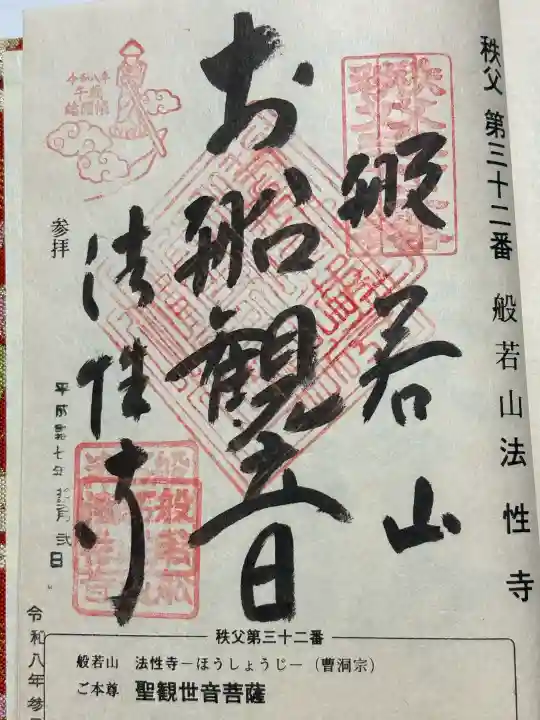 秩父 第三十二番 般若山法性寺
般若山
お船観世音
法性寺
令和八年
午歳
総開帳
参拝
秩父第三十二番
般若山 法性寺―ほうしょうじ―(曹洞宗)
ご本尊 聖観世音菩薩
令和八年参